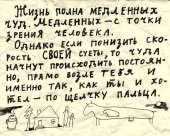 Жизнь полна медленных
чуд. Медленных – с точки
зрения человека.
Однако если понизить ско-
рость своей суеты, то чуда
начнут происходить постоян-
но, прямо возле тебя и
именно так, как ты и хо-
тел – по щелчку пальца.